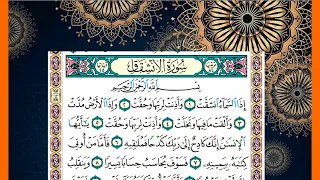 سورة الانشقاق
بسم الله الرحمن الرحيم
إذا السماء انشقت ١ وأذنت لربها وحقت ٢ وإذا الأرض مدت
٣ وألقت ما فيها وتخلت ٤ وأذنت لربها وحقت ٥ يأيها
الإنسن إنك كادح إلى ربك كدحا فملقيه ٦ فأما من أوتي
كتبه بيمينه ٧ فسوف يحاسب حسابا يسيرا ٨ وينقلب